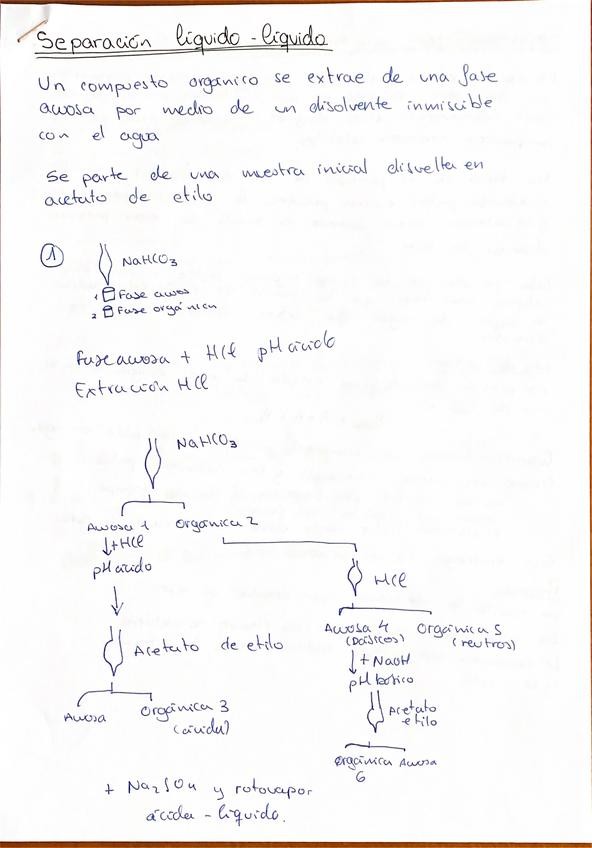 Separación líquido-líquido
Un compuesto orgánico se extrae de una fase
acuosa por medio de un disolvente inmiscible
con el agua
Se parte de una muestra inicial disuelta en
acetato de etilo
1
NaHCO3
1 Fase acuos
2 Fase orgánica
Fase acuosa + HCl pH ácido
Extracción HCl
NaHCO3
Acuosa 1 Orgánica 2
↓+HCl
pH ácido
HCl
Acuosa 4 Orgánica 5
(básicos) (neutros)
Acetato de etilo
↓ + NaOH
pH básico
Acuosa Orgánica 3
(ácida)
Acetato
etilo
Orgánica Acuosa
6
+ Na2SO4 y rotovapor
ácida - líquido.